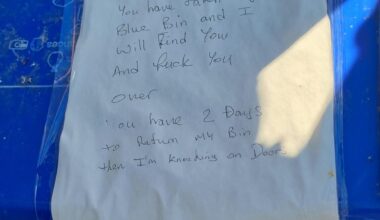 You have taken
Blue Bin and I
Will Find You
And Fuck You
over
You have 2 Days
to Return My Bin
then I'm knocking on Door